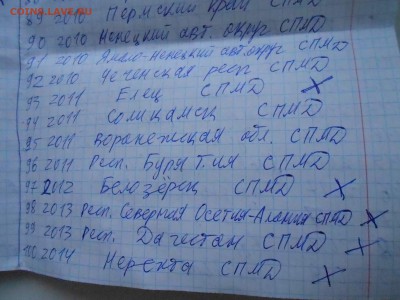 COINS.LAVE.RU
89 2010 Пермский край СПМД
90 2010 Ненецкий авт. округ СПМД
91 2010 Ямало-Ненецкий авт.округ СПМД
92 2010 Чеченская респ СПМД
93 2011 Елец СПМД X
94 2011 Соликамск СПМД
95 2011 Воронежская обл. СПМД
96 2011 Респ. Бурятия СПМД
97 2012 Белозёрск СПМД X
98 2013 Респ. Северная Осетия-Алания СПМД X
99 2013 Респ. Дагестан СПМД X
100 2014 Нерехта СПМД X